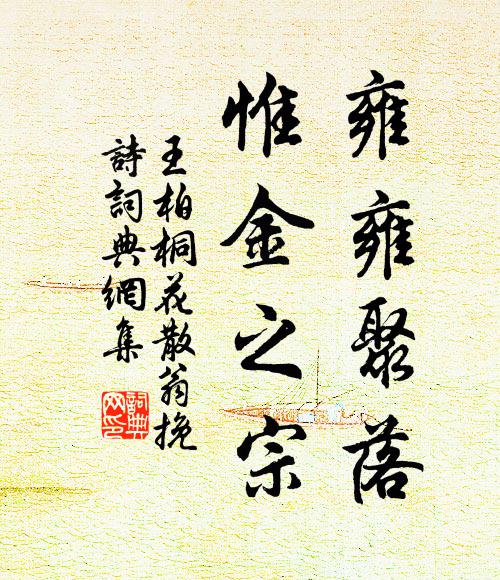 雍雍聚落
惟金之宗
王柏桐花散翁挽
詩詞典網集
詞典
网印